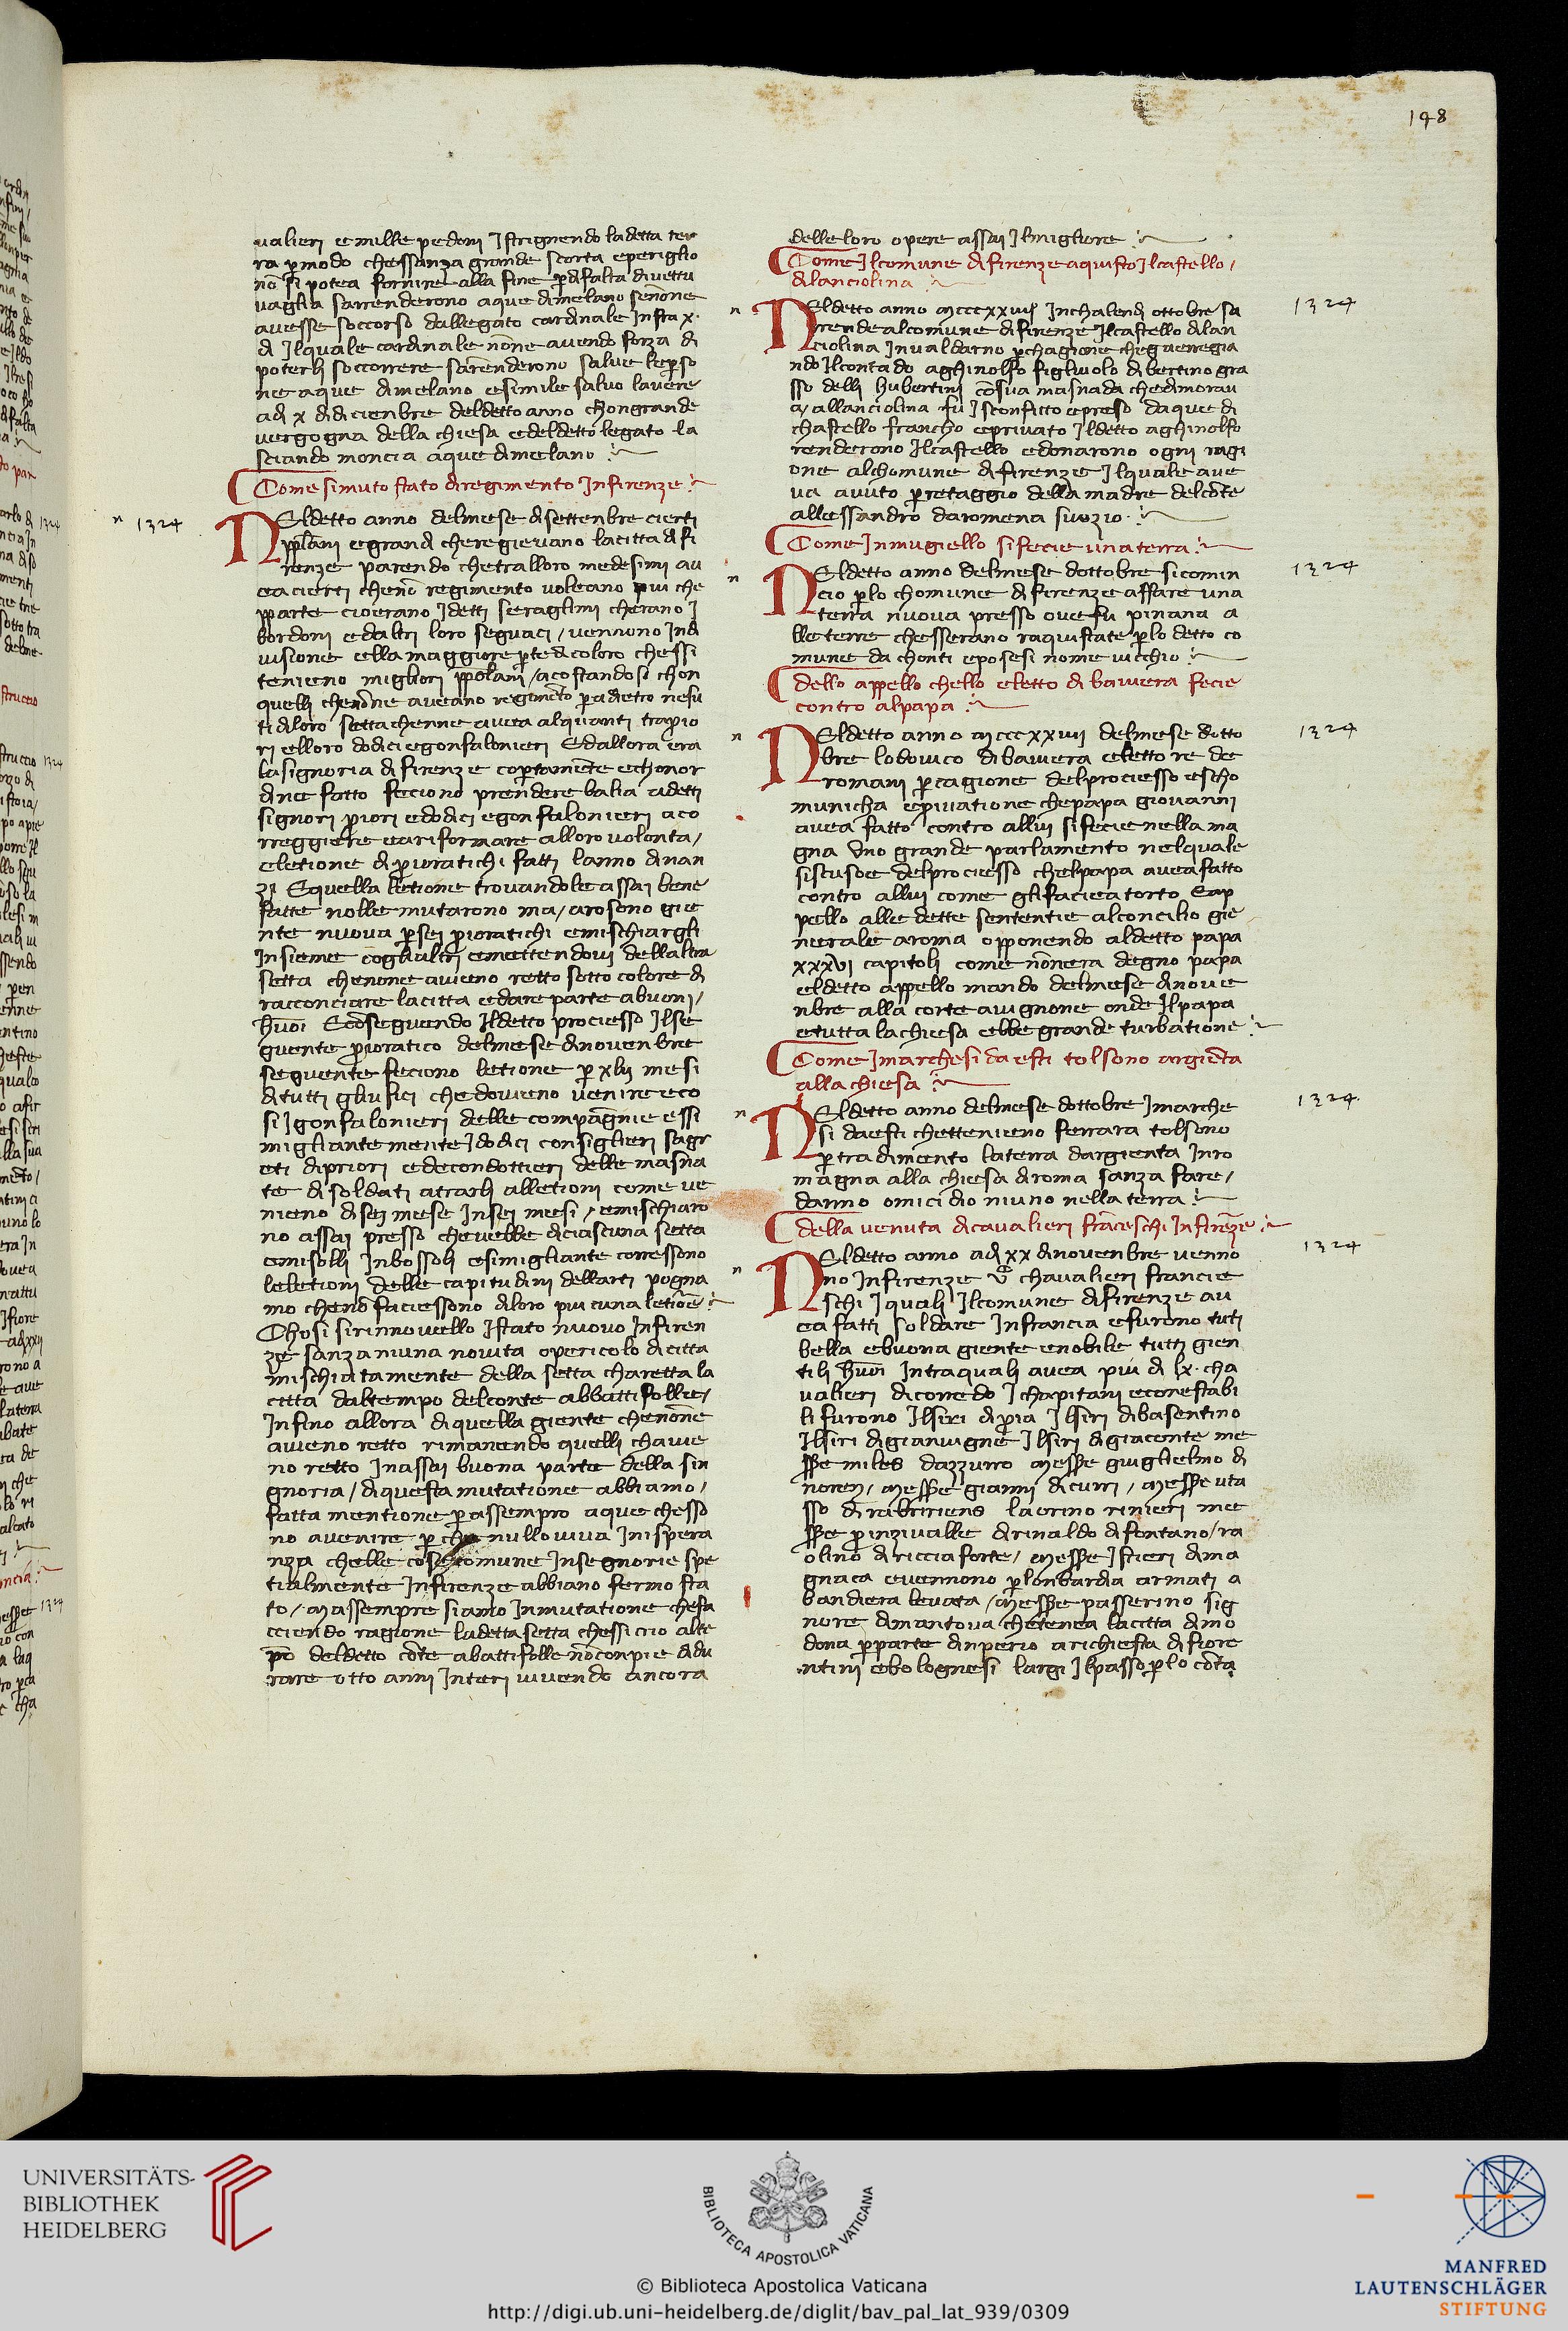 198
ualieri e mille pedoni Istrignendo la detta ter
ra p modo chessanza grande scorta eperiglio
nō si potea fornire alla fine p difalta di uettu
uaglia sarrenderono aque dimelano senōne
auesse soccorso dallegato cardinale Infra x.
di Ilquale cardinale nōne auendo forza di
poterli soccorrere sarēnderono salue lepso
ne aque dimelano esimile salvo lauere
adi x di dicienbre deldetto anno chongrande
vergogna della chiesa edeldetto legato la
sciando moncia aque dimelano
Come simuto stato diregimento Infirenze
1324
Neldetto anno delmese disettenbre cierti
ppolani egrandi cheregievano lacitta di fi
renze parendo chetralloro medesimi au
ea cierti chenō regimento voleano piu che
pparte cioerano Idetti seraglini cherano I
bordoni edaltri loro seguaci / vennono Indi
uisione ella maggiore pte di coloro chessi
tenieno migliori ppolani / acostandosi chon
quelli chenōne aveano regimēto p adietro nesu
ti diloro setta chenne auea alquanti tra prio
ri elloro dodici egonfalonieri Edallora era
lasignoria di firenze coptamēte echonor
dine fatto feciono prendere balia adetti
signori priori edodici egonfalonieri aco
rreggiere eariformare alloro volonta /
eletione di prioratichi fatti lanno dinan
zi Equella letione trouandole assai bene
fatte nolle mutarono ma / arosono gie
nte nuoua p sei prioratichi emischiargli
Insieme cogli altri emettendoui dellaltra
setta chenone auieno retto sotto colore di
racconciare lacitta edare parte abuoni /
huoī Ecōseguendo Ildetto prociesso Ilse
guente prioratico delmese dinouenbre
seguente feciono letione p xlii mesi
ditutti gliufici chedouieno uenire eco
si Igonfalonieri delle compāgnie essi
migliantemente Idodici consiglieri sagr
eti dipriori edecondottieri delle masna
te disoldati atrarli alletioni come ue
nieno di sei mese Insei mesi / emischiaro
no assai presso chevebbe diciascuna setta
emisolli Inbossoli esimigliante corressono
leletioni delle capitudini dellarti pogna
mo chenō faciessono diloro piu cuna letiōe
Chosi sirinnouello Istato nuouo Infiren
ze sanza niuna nouita opericolo dicitta
mischiatamente della setta charetta la
citta daltempo delconte abbattifolle /
Infino allora diquella giente chenōne
auieno retto rimanendo quelli chauie
no retto Inassai buona parte della sin
gnoria / diquesta mutatione abbiamo /
fatta mentione passempro aque chesso
no avenire p che nullo viua Inispera
nza chelle cose comune Insegnorie spe
tialmente Infirenze abbiano fermo sta
to / Massempre siamo Inmutatione chefa
cciendo ragione ladetta setta chessi crio alte
pō deldetto cōte abattifolle nōcompie didu
rare otto anni Interi uiuendo ancora
delle loro opere assai Ilmigliore
Come Ilcomune di firenze aquisto Ilcastello /
dilanciolina
1324
Neldetto anno Mcccxxiiij Inchalendi ottobre sa
rende alcomune di firenze Ilcastello dilan
ciolina Inualdarno pchagione cheguerregia
ndo Ilcontado aghinolfo figliuolo di bertino gra
sso delli hubertini cōsua masnada chedimorau
a / allanciolina fu Isconfitto epreso daque di
chastello francho epriuato Ildetto aghinolfo
renderono Ilcastello edonarono ogni ragi
one alchomune di firenze Ilquale aue
ua auuto pretaggio della madre delcōte
allessandro daromena suozio
Come Inmugiello sifecie una terra
1324
Neldetto anno delmese dottobre sicomin
cio plo chomune di firenze affare una
terra nuova presso ouefu pinana a
lle terre chesserano raquistate plo detto co
mune da chonti eposesi nome uicchio
dello appello chello eletto di bauiera fecie
contro alpapa
1324
Neldetto anno Mcccxxiiij delmese dotto
bre lodouico dibauiera elettore de
romani pcagione delprociesso escho
municha epriuatione chepapa giouanni
auea fatto contro allui sifecie nella ma
gna vno grande parlamento nelquale
siscusoe delprociesso chelpapa auea fatto
contro allui come glifaciea torto Eap
pello alle dette sententie alconcilio gie
nerale aroma opponendo aldetto papa
xxxvi capitoli come nōnera degno papa
eldetto appello mando delmese dinoue
nbre alla corte auignone onde Ilpapa
etutta lachiesa ebbe grande turbatione
Come Imarchesi da esti tolsono argiēta
alla chiesa
1324
Neldetto anno delmese dottobre Imarche
si daesti chettenieno ferrara tolsono
ptradimento laterra dargienta Inro
magna alla chiesa diroma sanza fare /
danno omicidio niuno nella terra
della venuta dicaualieri frāceschi Infirēze
1324
Neldetto anno adi xx dinouenbre venno
no Infirenze vc chavalieri francie
schi Iquali Ilcomune di firenze au
ea fatti soldare Infrancia efurono tuti
bella ebuona giente enobile tutti gien
tili huoī Intra quali auea piu di lx. cha
ualieri dicorredo I chapitani econestabi
li furono Ilsiri di pria Ilsiri dibasentino
Ilsiri digianuigne Ilsiri digiaconte me
sse miles dazzurro Messe guiglielmo di
noren / Messe gianni dicurri / Messe uta
sso dirabririens laorino rinieri me
sse prinziualle dirinaldo di fontano / ra
olino di riccia forte / Messe Istieri dima
gnaca evennono plonbardia armati a
bandiera leuata / Messe passerino sig
nore dimantoua chetenea lacitta dimo
dona pparte dinperio arichiesta di fiore
ntini ebolognesi largi Ilpasso plo cōta
UNIVERSITÄTS-
BIBLIOTHEK
HEIDELBERG
BIBLIOTECA APOSTOLICA VATICANA
© Biblioteca Apostolica Vaticana
http://digi.ub.uni-heidelberg.de/diglit/bav_pal_lat_939/0309
MANFRED
LAUTENSCHLÄGER
STIFTUNG